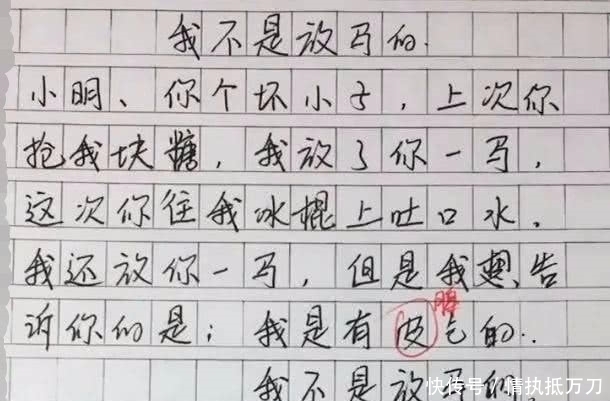 我不是放马的.
小明、你个坏小子，上次你
抢我块糖，我放了你一马，
这次你往我冰棍上吐口水，
我还放你一马，但是我想告
诉你的是：我是有皮气的..
脾
我不是放马的
快传号/情执抵万刀